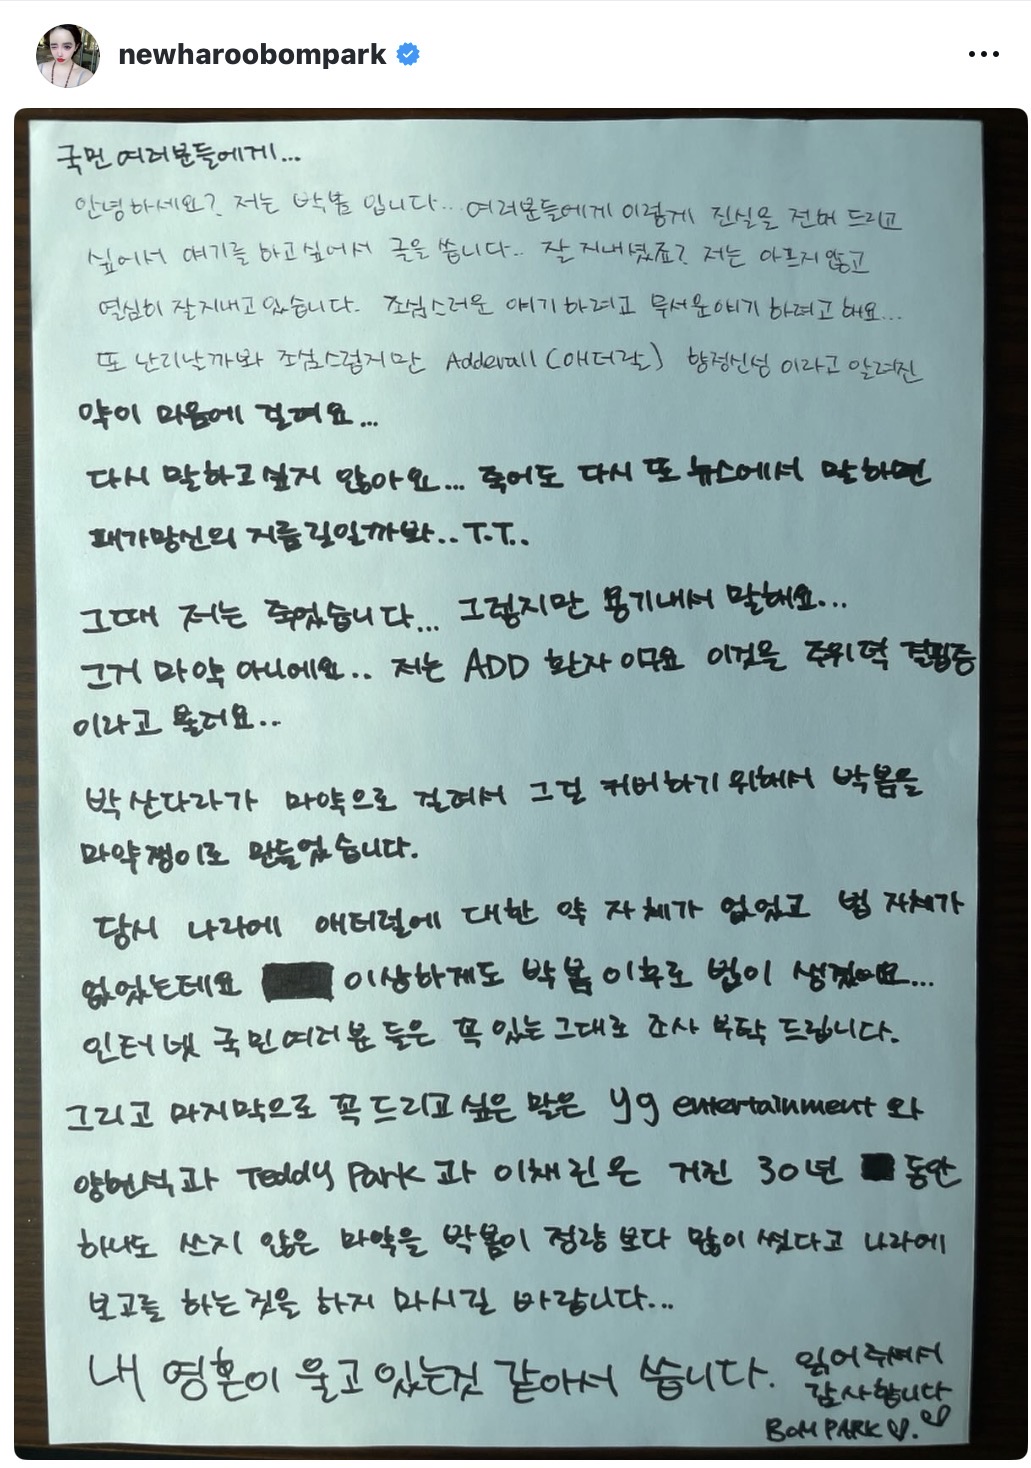 newharoobompark
국민 여러분들에게...
안녕하세요? 저는 박봄 입니다... 여러분들에게 이렇게 진실을 전버 드리고
싶어서 얘기를 하고싶어서 글을 씁니다.. 잘 지내셨죠? 저는 아프지 않고
열심히 잘지내고 있습니다. 조심스러운 얘기 하려고 무서운얘기 하려고 해요...
또 난리날까봐 조심스럽지만 Adderall (애더랄) 향정신성 이라고 알려진
약이 마음에 걸려요...
다시 말하고싶지 않아요... 죽어도 다시 또 뉴스에서 말하면
패가망신의 지름길일까봐.. T.T..
그때 저는 죽었습니다... 그렇지만 용기내서 말해요...
그거 마약 아니에요.. 저는 ADD 환자 이구요 이것을 주위력 결핍증
이라고 불러요..
박산다라가 마약으로 걸려서 그걸 커버하기 위해서 박봄을
마약쟁이로 만들었습니다.
당시 나라에 애더럴에 대한 약 자체가 없었고 법 자체가
없었는데요 이상하게도 박봄 이후로 법이 생겼어요...
인터넷 국민여러분 들은 꼭 있는그대로 조사 부탁 드립니다.
그리고 마지막으로 꼭 드리고싶은 말은 yg entertainment 와
양현석과 Teddy Park 과 이채린은 거진 30년 동안
하나도 쓰지 않은 마약을 박봄이 정량 보다 많이 썼다고 나라에
보고를 하는것을 하지 마시길 바랍니다...
내 영혼이 울고있는것 같아서 씁니다. 읽어주셔서
감사합니다
BOM PARK ♡. ♡